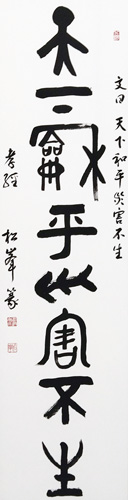 文曰 天下和平災害不生
天下龢平災害不生
孝經 松峯篆